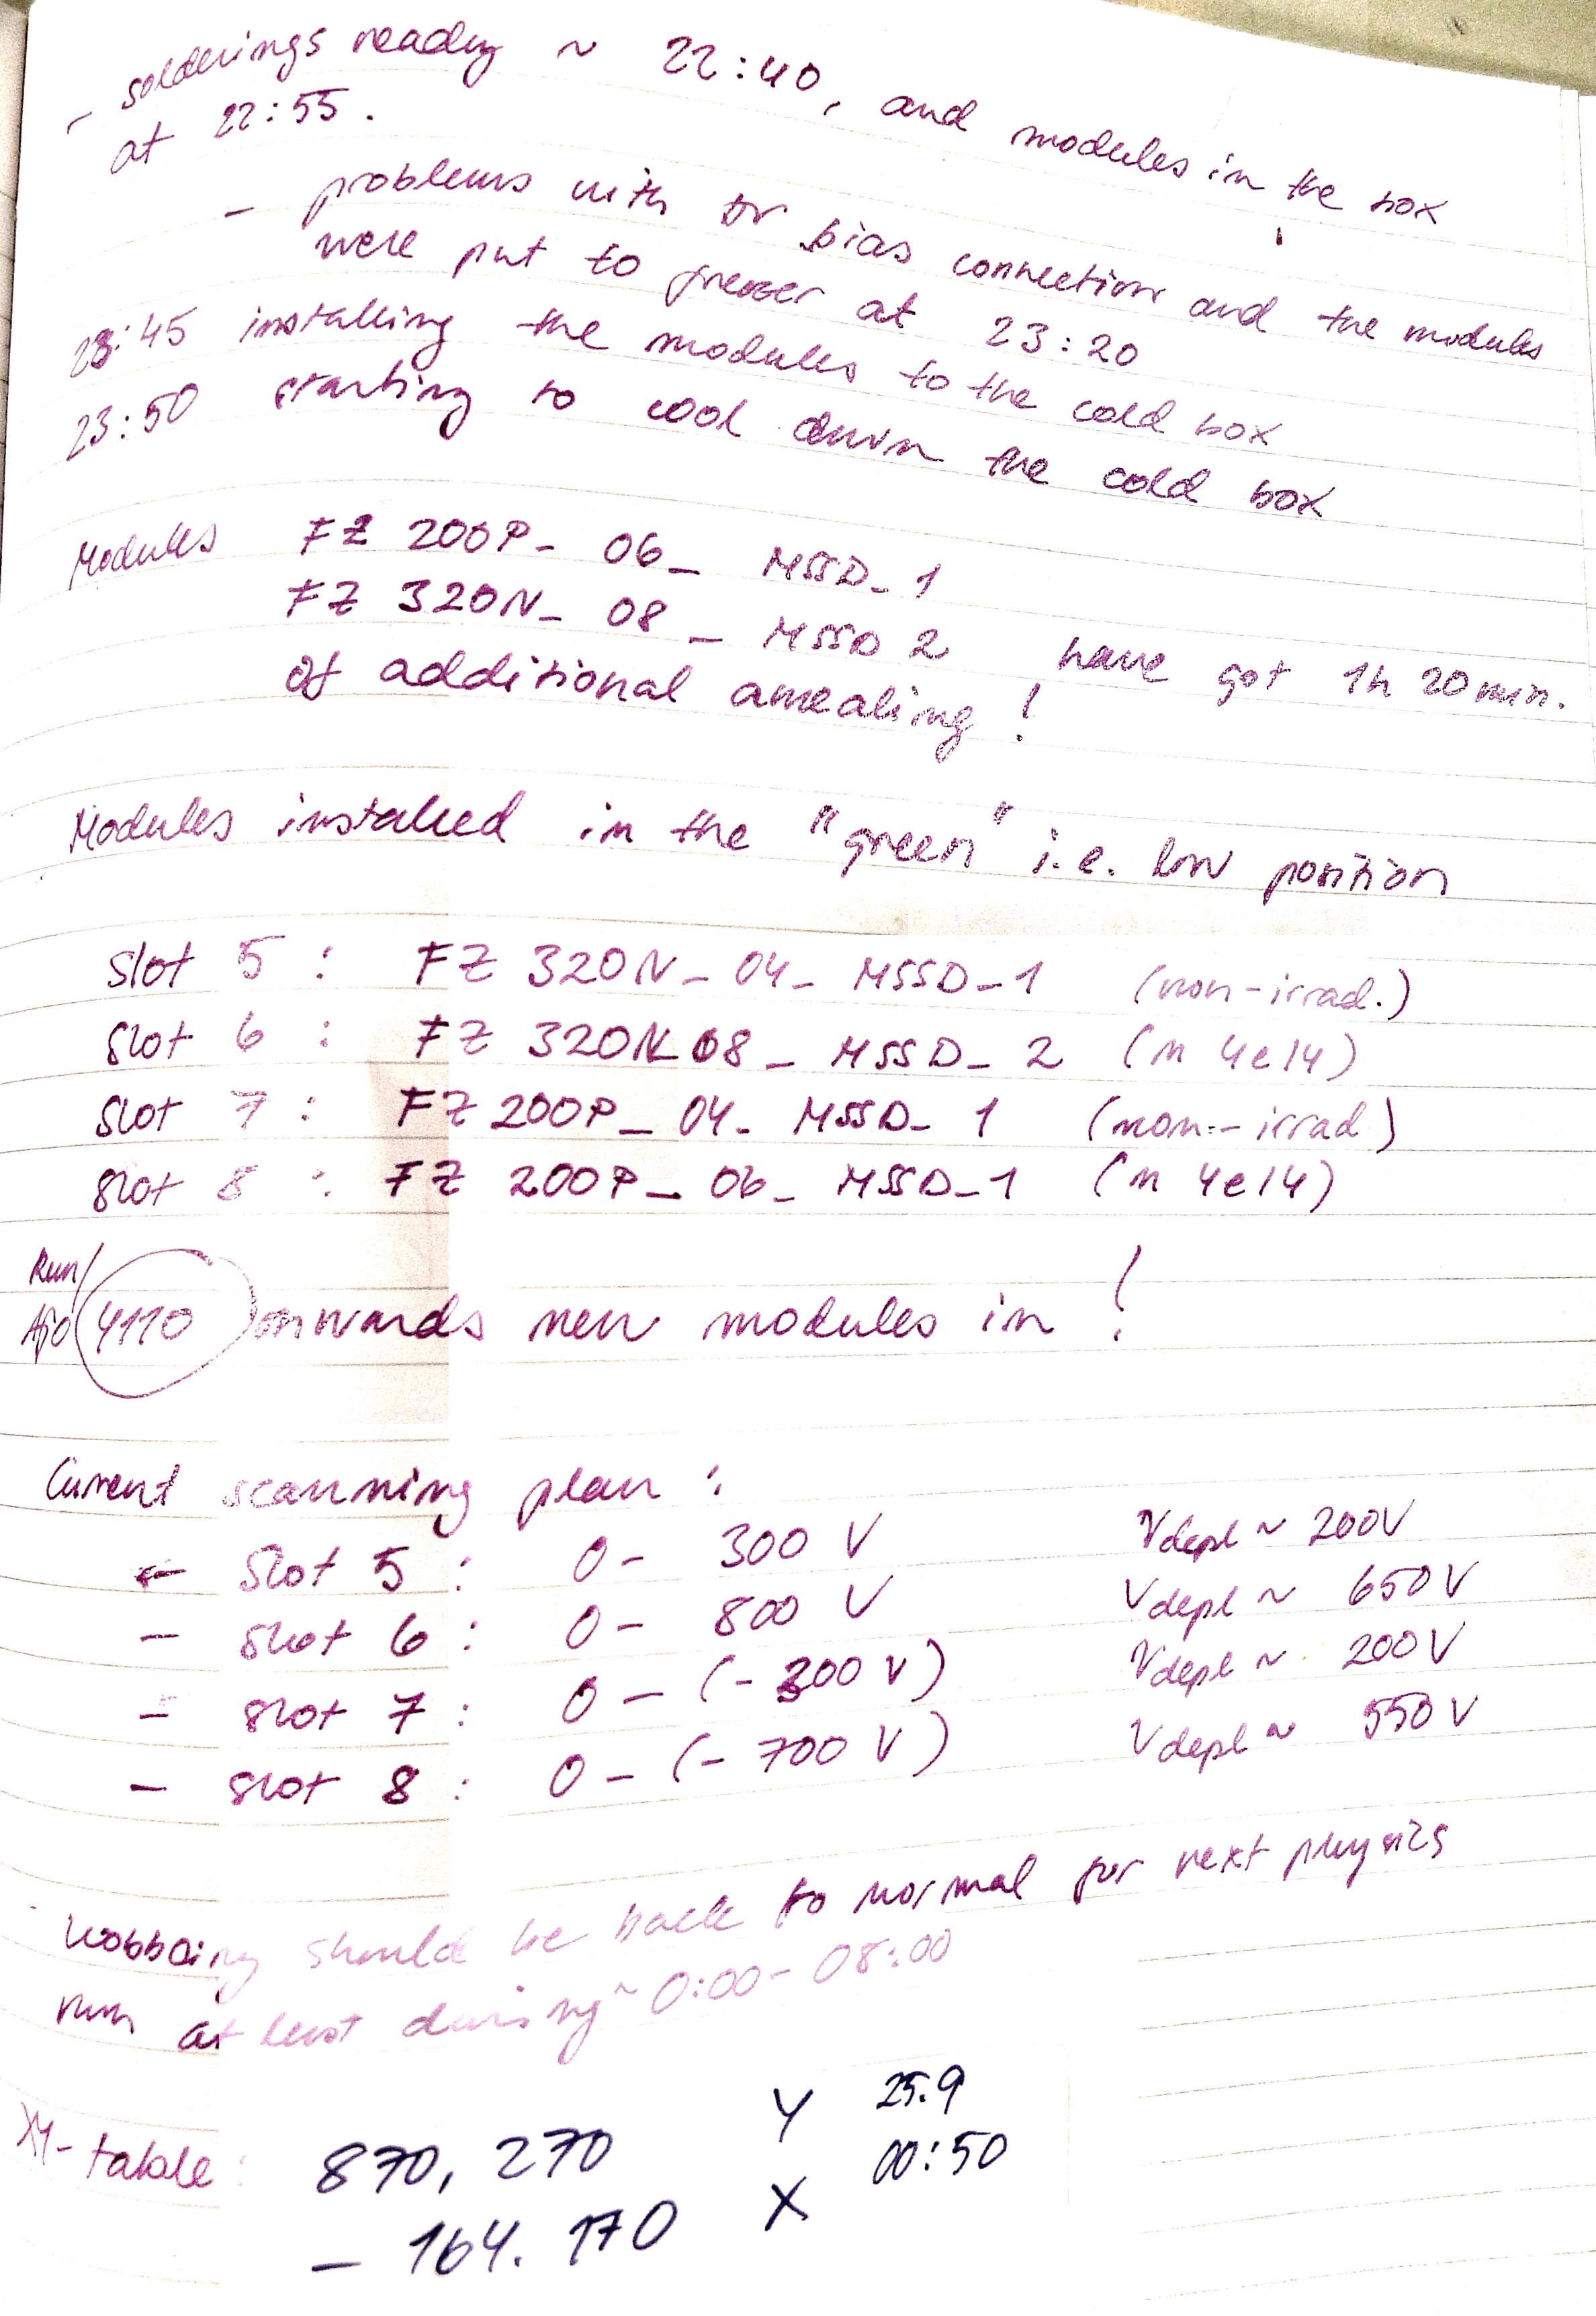 - solderings ready ~ 22:40, and modules in the box
at 22:55.
- problems with bias connections and the modules
were put to freezer at 23:20
23:45 installing the modules to the cold box
23:50 starting to cool down the cold box
Modules FZ 200P_ 06_ MSSD_1
FZ 320N_ 08_ MSSD 2 have got 1h 20min.
of additional annealing!
Modules installed in the "green" i.e. low position
Slot 5: FZ 320N_ 04_ MSSD_1 (non-irrad.)
Slot 6: FZ 320N_08_ MSSD_2 (n 4e14)
Slot 7: FZ 200P_ 04_ MSSD_1 (non-irrad)
Slot 8: FZ 200P_ 06_ MSSD_1 (n 4e14)
Run/
4110 onwards new modules in!
Current scanning plan:
- Slot 5: 0- 300 V Vdepl ~ 200V
- slot 6: 0- 800 V Vdepl ~ 650V
- slot 7: 0- (-300 V) Vdepl ~ 200V
- slot 8: 0- (-700 V) Vdepl ~ 550V
should be back to normal for next physics
run at least during ~ 0:00- 08:00
XY-table: 870, 270 Y 25.9
- 164. 170 X 00:50